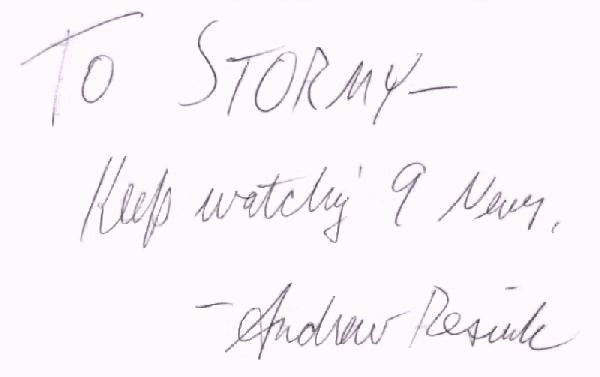 To STORMY—
Keep watchin' 9 News,
- Andrew Resnik